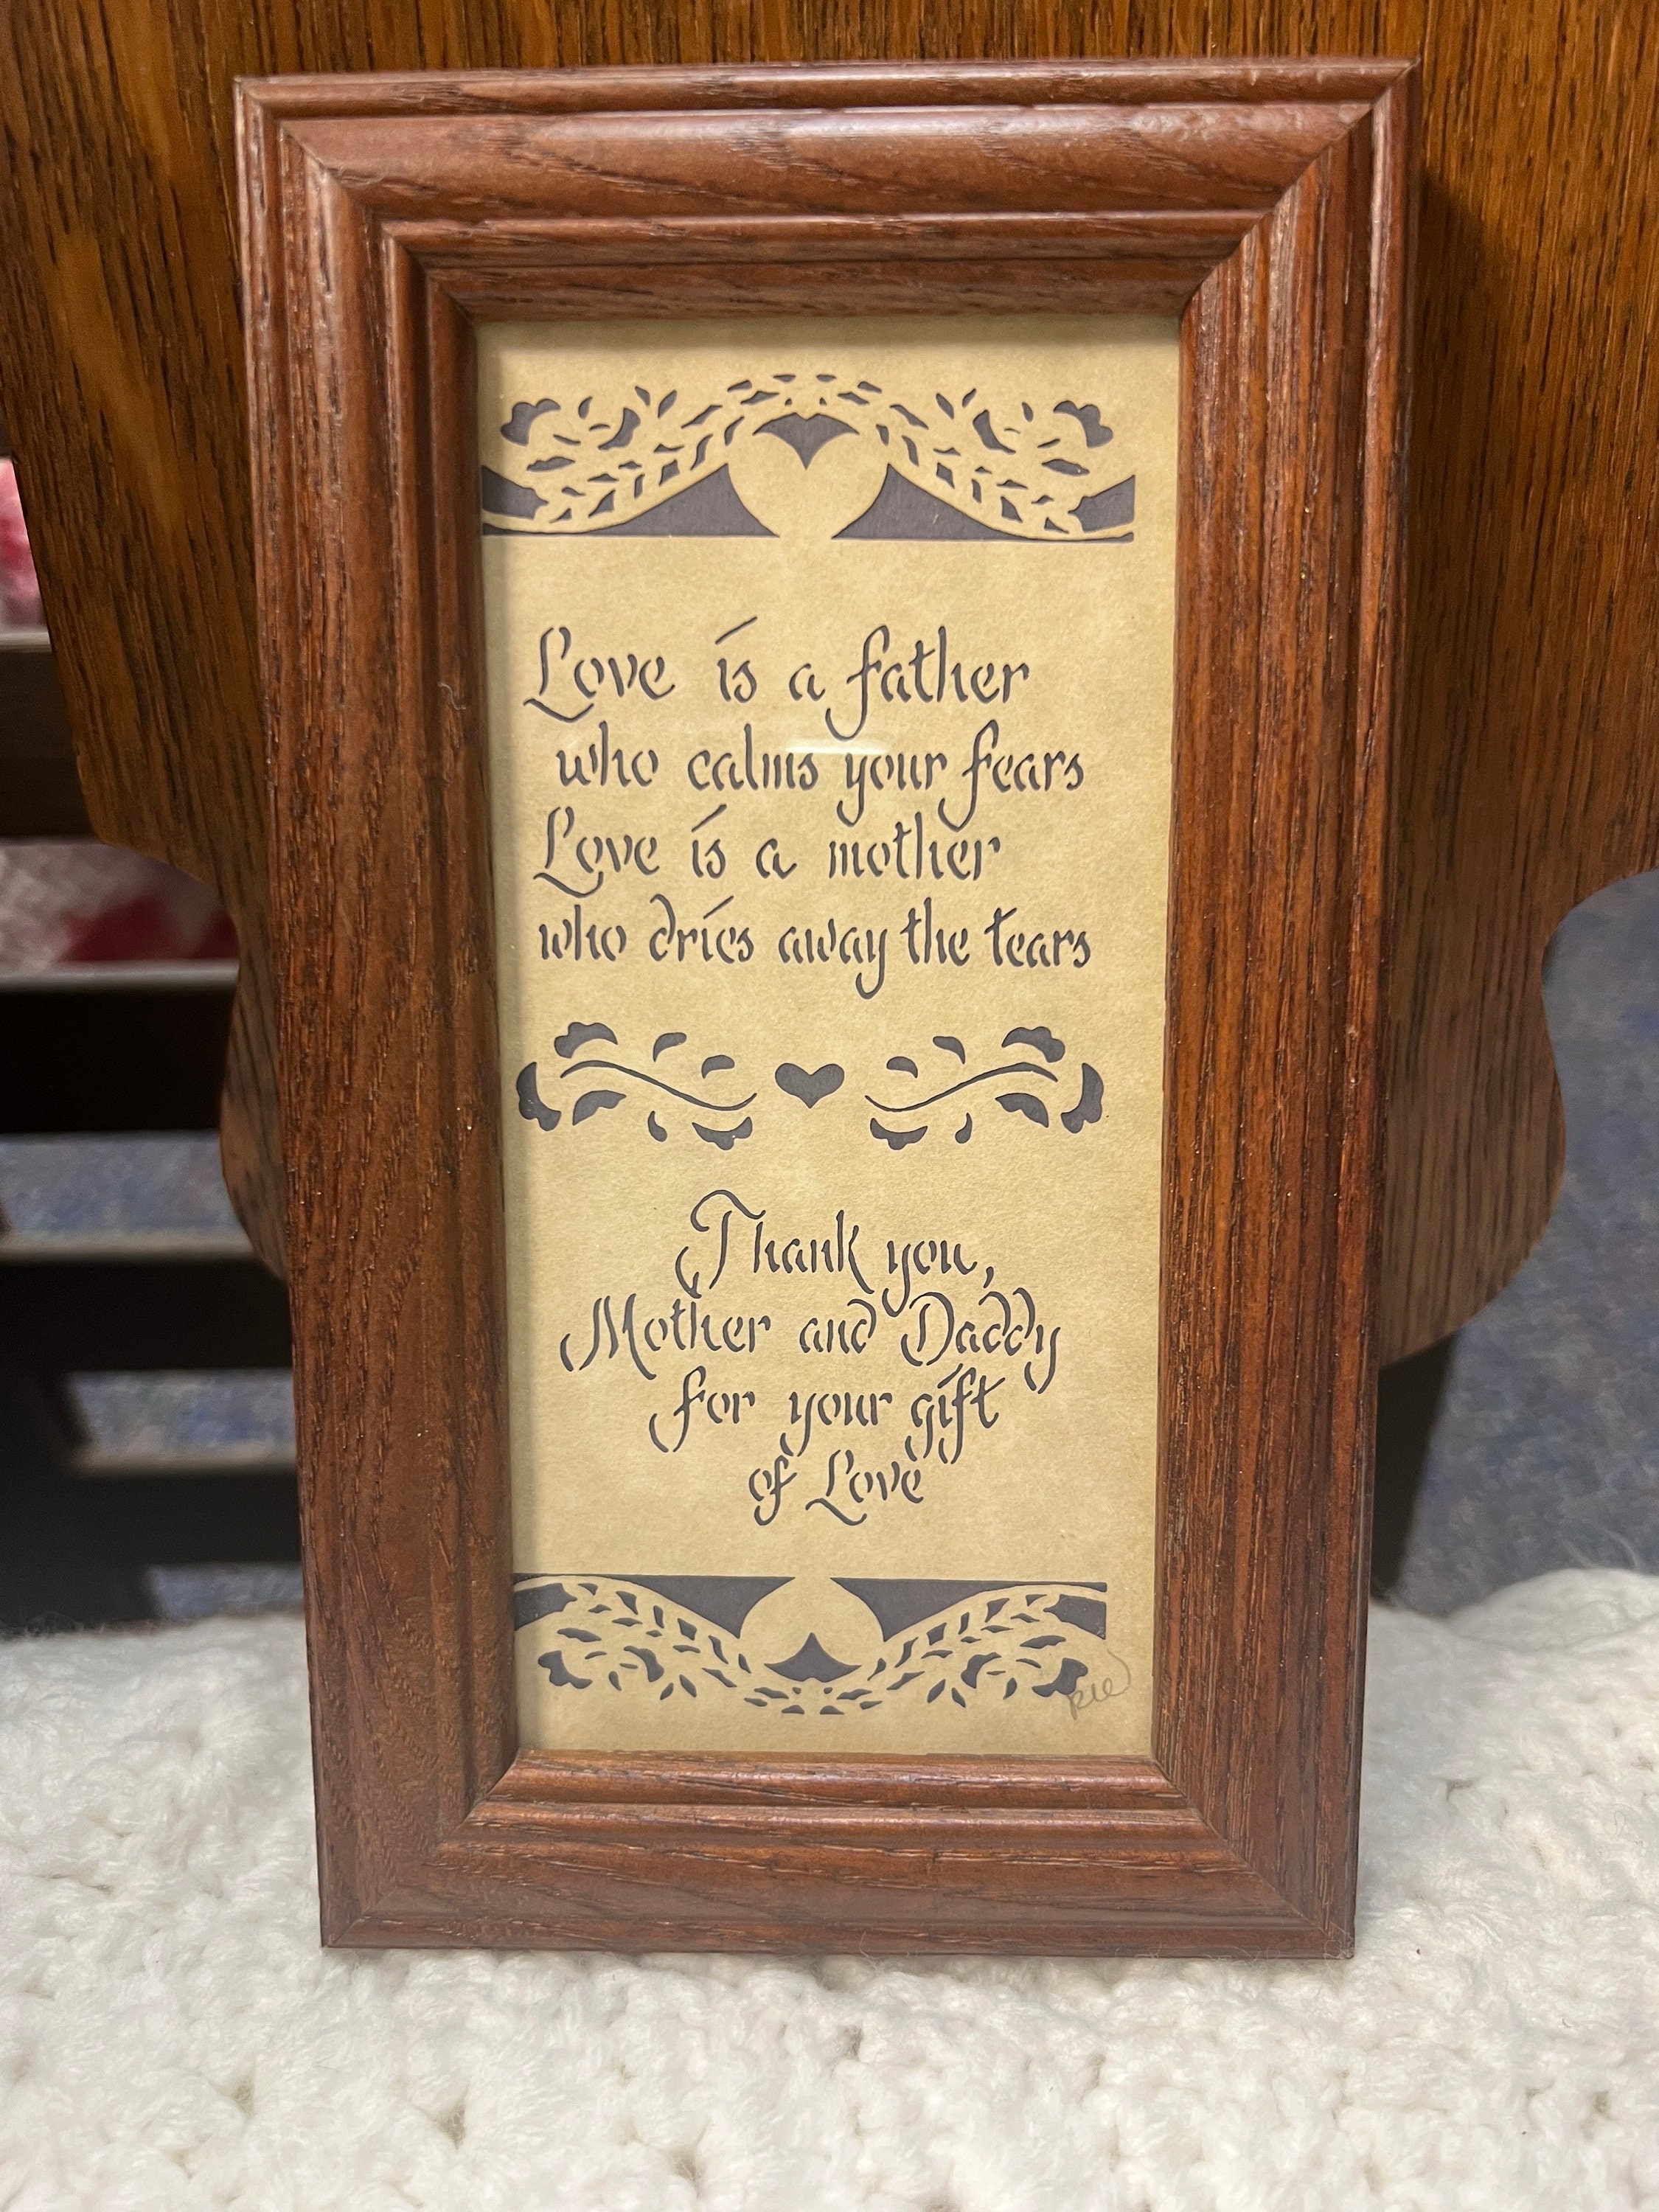 Love is a father
who calms your fears
Love is a mother
who dries away the tears
Thank you,
Mother and Daddy
for your gift
of Love